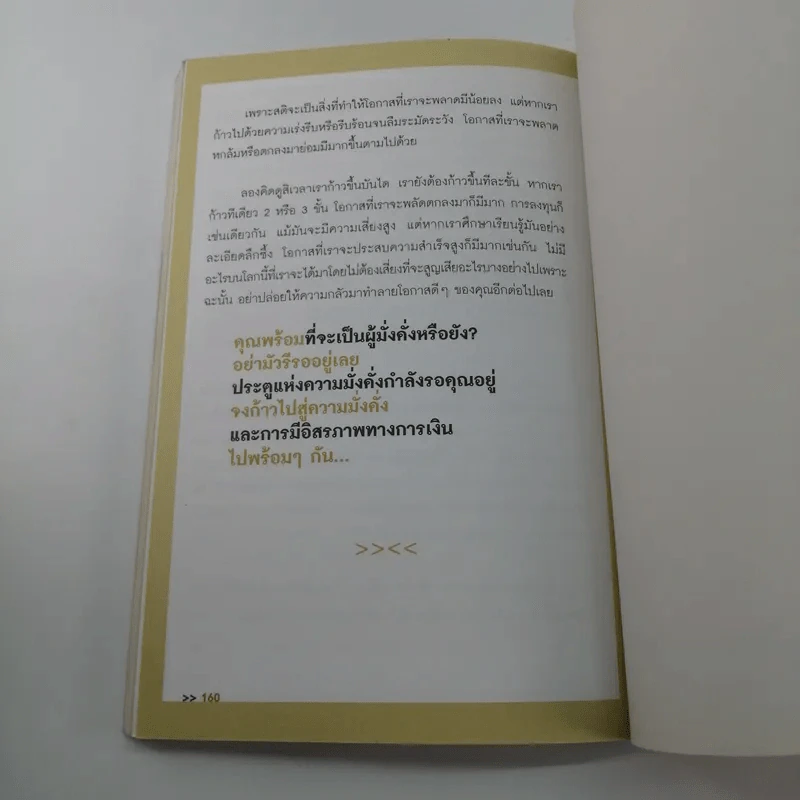 เพราะสติจะเป็นสิ่งที่ทำให้โอกาสที่เราจะพลาดมีน้อยลง แต่หากเรา
ก้าวไปด้วยความเร่งรีบหรือรีบร้อนจนลืมระมัดระวัง โอกาสที่เราจะพลาด
หกล้มหรือตกลงมาย่อมมีมากขึ้นตามไปด้วย
ลองคิดดูสิเวลาเราก้าวขึ้นบันได เรายังต้องก้าวขึ้นทีละขั้น หากเรา
ก้าวทีเดียว 2 หรือ 3 ขั้น โอกาสที่เราจะพลัดตกลงมาก็มีมาก การลงทุนก็
เช่นเดียวกัน แม้มันจะมีความเสี่ยงสูง แต่หากเราศึกษาเรียนรู้มันอย่าง
ละเอียดลึกซึ้ง โอกาสที่เราจะประสบความสำเร็จสูงก็มีมากเช่นกัน ไม่มี
อะไรบนโลกนี้ที่เราจะได้มาโดยไม่ต้องเสี่ยงที่จะสูญเสียอะไรบางอย่างไปเพราะ
ฉะนั้น อย่าปล่อยให้ความกลัวมาทำลายโอกาสดีๆ ของคุณอีกต่อไปเลย
คุณพร้อมที่จะเป็นผู้มั่งคั่งหรือยัง?
อย่ามัวรีรออยู่เลย
ประตูแห่งความมั่งคั่งกำลังรอคุณอยู่
จงก้าวไปสู่ความมั่งคั่ง
และการมีอิสรภาพทางการเงิน
ไปพร้อมๆ กัน...
>><<
>> 160